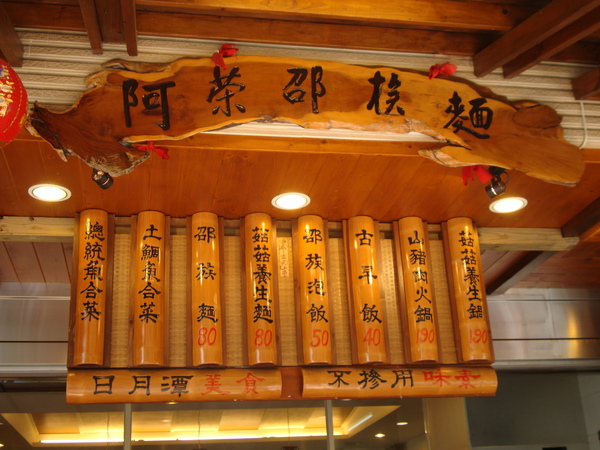 阿榮邵族麵
總統魚合菜
土鯛魚合菜
邵族麵 80
姑姑養生麵 80
邵族泡飯 50
古早飯 40
山豬肉火鍋 190
姑姑養生鍋 190
日月潭美食
不摻用味素